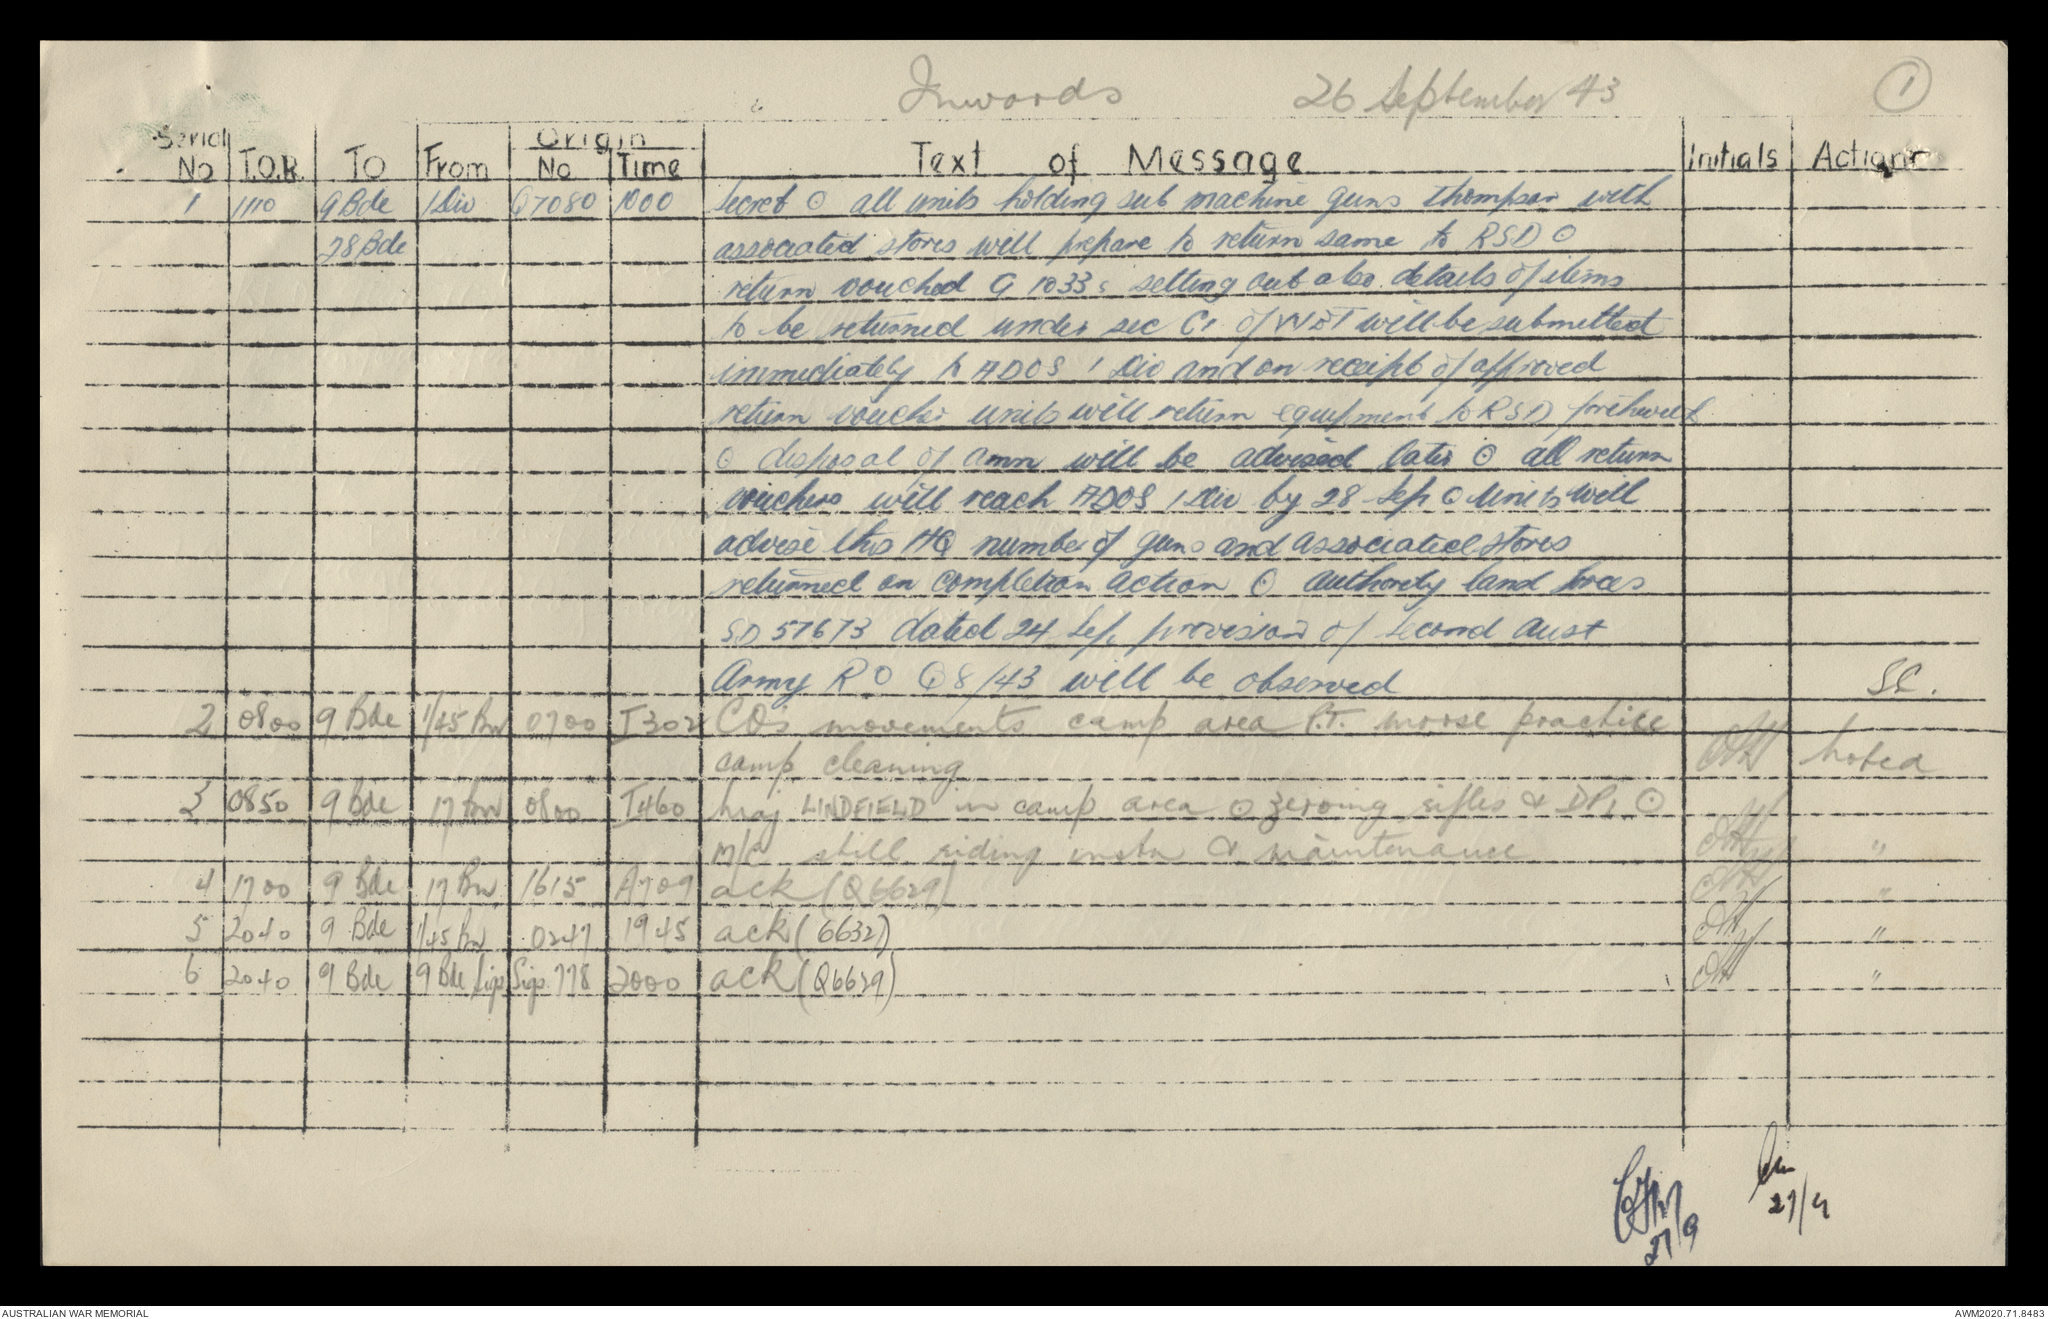 Inwards 26 September 43 1
Serial No T.O.R. TO From Origin No Time Text of Message Initials Action
1 1110 9 Bde 1 Div Q7080 1000 Secret ⊙ all units holding sub machine guns Thompson with
28 Bde associated stores will prepare to return same to RSD ⊙
return vouched G 1033s setting out also details of items
to be returned under sec C1 of WET will be submitted
immediately to ADOS 1 Div and on receipt of approved
return voucher units will return equipment to RSD forthwith
⊙ disposal of amn will be advised later ⊙ all return
vouchers will reach ADOS 1 Div by 28 Sep ⊙ Units will
advise this HQ number of guns and associated stores
returned on completion action ⊙ authority land forces
SD 57673 dated 24 Sep, provision of Second Aust
Army R O Q8/43 will be observed SC.
2 0800 9 Bde 1/45 Bn 0700 I302 COs movements camp area P.T. morse practice
camp cleaning noted
3 0850 9 Bde 17 Bn 0800 I460 Maj LINDFIELD in camp area ⊙ zeroing rifles & DP1 ⊙
M/C still riding instn & maintenance "
4 1700 9 Bde 17 Bn 1615 A709 ack (Q6629) "
5 2040 9 Bde 1/45 Bn 0247 1945 ack (6632) "
6 2040 9 Bde 9 Bde Sigs Sigs 778 2000 ack (Q6629) "
27/9 27/9
AUSTRALIAN WAR MEMORIAL AWM2020.71.8483